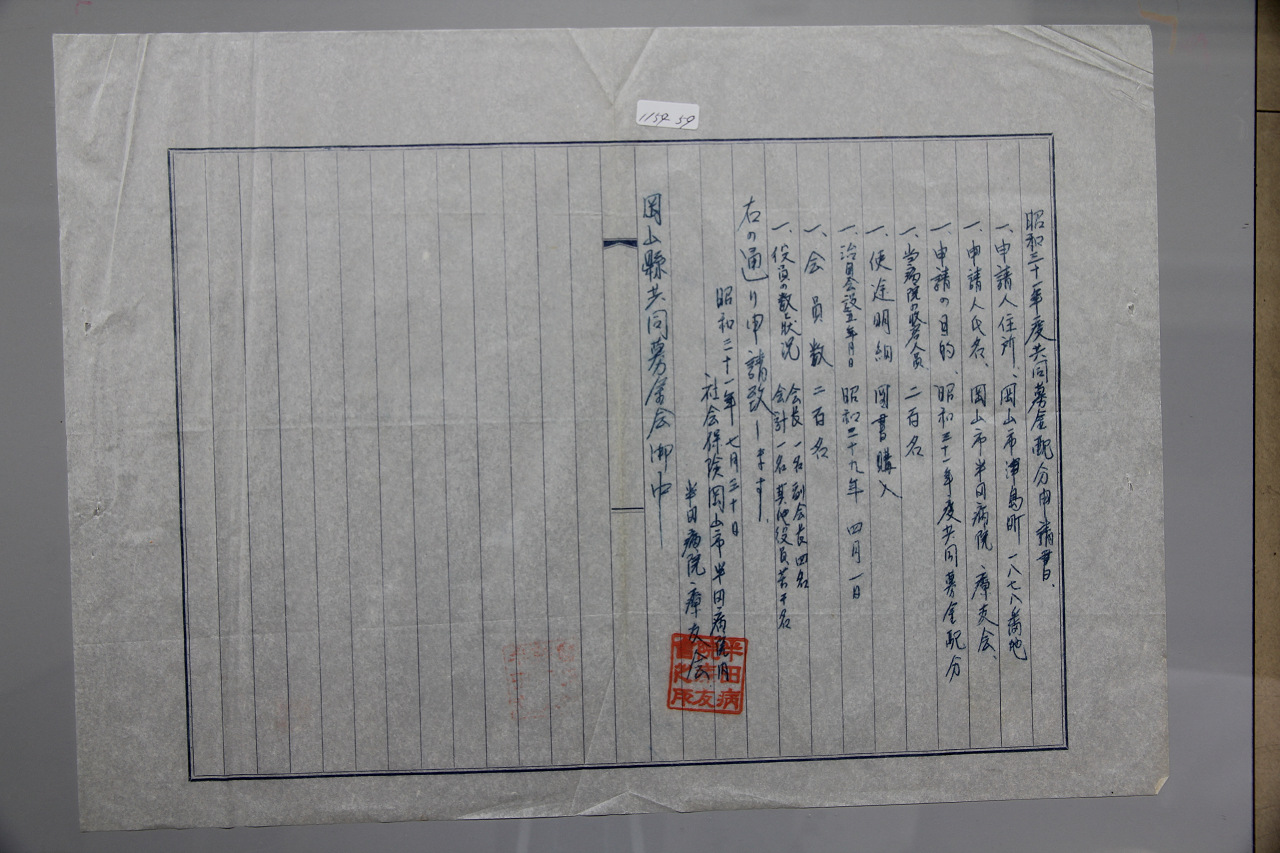 1154-59
昭和三十一年度共同募金配分申請書、
一、申請人住所、岡山市津島町一八七八番地
一、申請人氏名、岡山市半田病院療友会、
一、申請の目的、昭和三十一年度共同募金配分
一、当病院の収容人員 二百名
一、使途明細 図書購入
一、治自会設立年月日 昭和二十九年四月一日
一、会員数 二百名
一、役員の数と状況 会長一名副会長四名
会計一名其他役員若干名
右の通り申請致します、
昭和三十一年七月三十日
社会保険岡山市半田病院内
半田病院療友会
岡山縣共同募金会御中
半田病
院療友